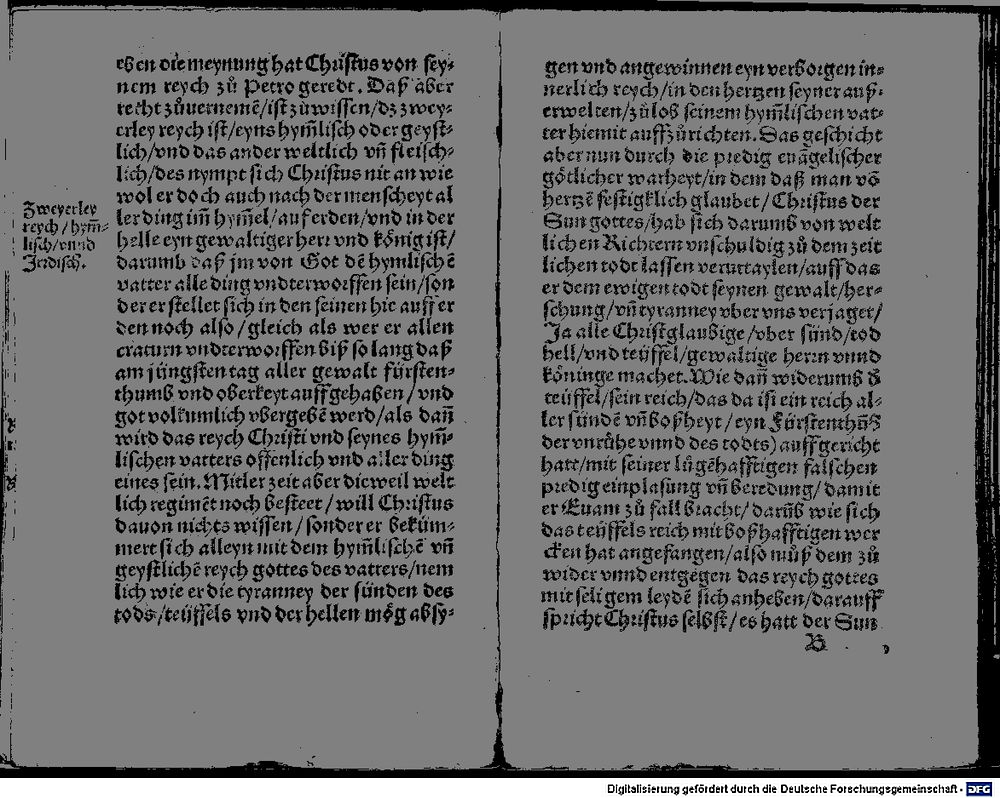 eben die meynung hat Christus von sey⸗
nem reych zů Petro geredt. Daß aber
recht zůuernemē/ist zů wissen/dz zwey⸗
erley reych ist/eyns hym̄lisch oder geyst⸗
lich/vnd das ander weltlich vn̄ fleisch⸗
lich/des nympt sich Christus nit an wie
wol er doch auch nach der menscheyt al
ler ding im̄ hym̄el/auf erden/vnd in der
helle eyn gewaltiger herr vnd kônig ist/
darumb daß jm von Got dē hymlischē
vatter alle ding vndterworffen sein/son
der er stellet sich in den seinen hie auff er
den noch also/gleich als wer er allen
craturn vndterworffen biß so lang daß
am jüngsten tag aller gewalt fürsten⸗
thumb vnd oberkeyt auffgehaben/vnd
got volkumlich vbergebē werd/als dan̄
wird das reych Christi vnd seynes hym̄⸗
lischen vatters offenlich vnd aller ding
eines sein. Mitler zeit aber dieweil welt
lich regimēt noch besteet/will Christus
dauon nichts wissen/sonder er beküm⸗
mert sich alleyn mit dem hym̄lischē vn̄
geystlichē reych gottes des vatters/nem
lich wie er die tyranney der sünden des
tods/teüffels vnd der hellen môg absy⸗
Zweyerley
reych/hym̄⸗
lisch/vnnd
Jrdisch.
gen vnd angewinnen eyn verborgen in⸗
nerlich reych/in den hertzen seyner auß⸗
erwelten/zů lob seinem hym̄lischen vat⸗
ter hiemit auffzůrichten. Das geschicht
aber nun durch die predig euāgelischer
gôtlicher warheyt/in dem daß man vō
hertzē festigklich glaubet/Christus der
Sun gottes/hab sich darumb von welt
lichen Richtern vnschuldig zů dem zeit
lichen todt lassen verurtaylen/auff das
er dem ewigen todt seynen gewalt/her⸗
schung/vn̄ tyranney vber vns verjaget/
Ja alle Christglaubige/vber sünd/tod
hell/vnd teüffel/gewaltige herrn vnnd
kôninge machet. Wie dan̄ widerumb d̄
teüffel/sein reich/das da ist ein reich al⸗
ler sündē vn̄ boßheyt/eyn Fürstenthum̄
der vnrůhe vnnd des todts) auffgericht
hatt/mit seiner lügēhafftigen falschen
predig einplasung vn̄ beredung/damit
er Euam zů fall bracht/darum̄b wie sich
das teüffels reich mit boßhafftigen wer
cken hat angefangen/also můß dem zů
wider vnnd entgegen das reych gottes
mit seligem leydē sich anheben/darauff
spricht Christus selbst/es hatt der Sun
B
Digitalisierung gefördert durch die Deutsche Forschungsgemeinschaft - DFG